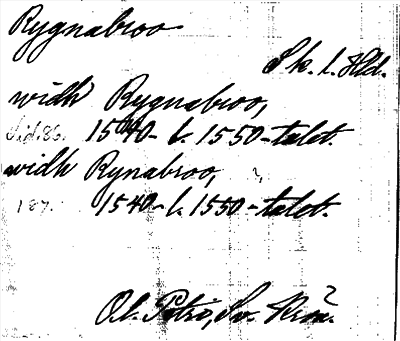 Rygnabroo
Sk. l. Hld.
widh Rygnabroo,
Sid. 86. 1540- l. 1550-talet.
widh Rynabroo,
187. 1540- l. 1550-talet.
Ol. Petri, Sv. Krön.